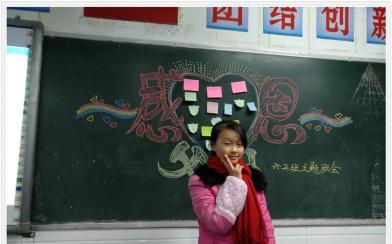 团结创新
感恩
六2班主题班会